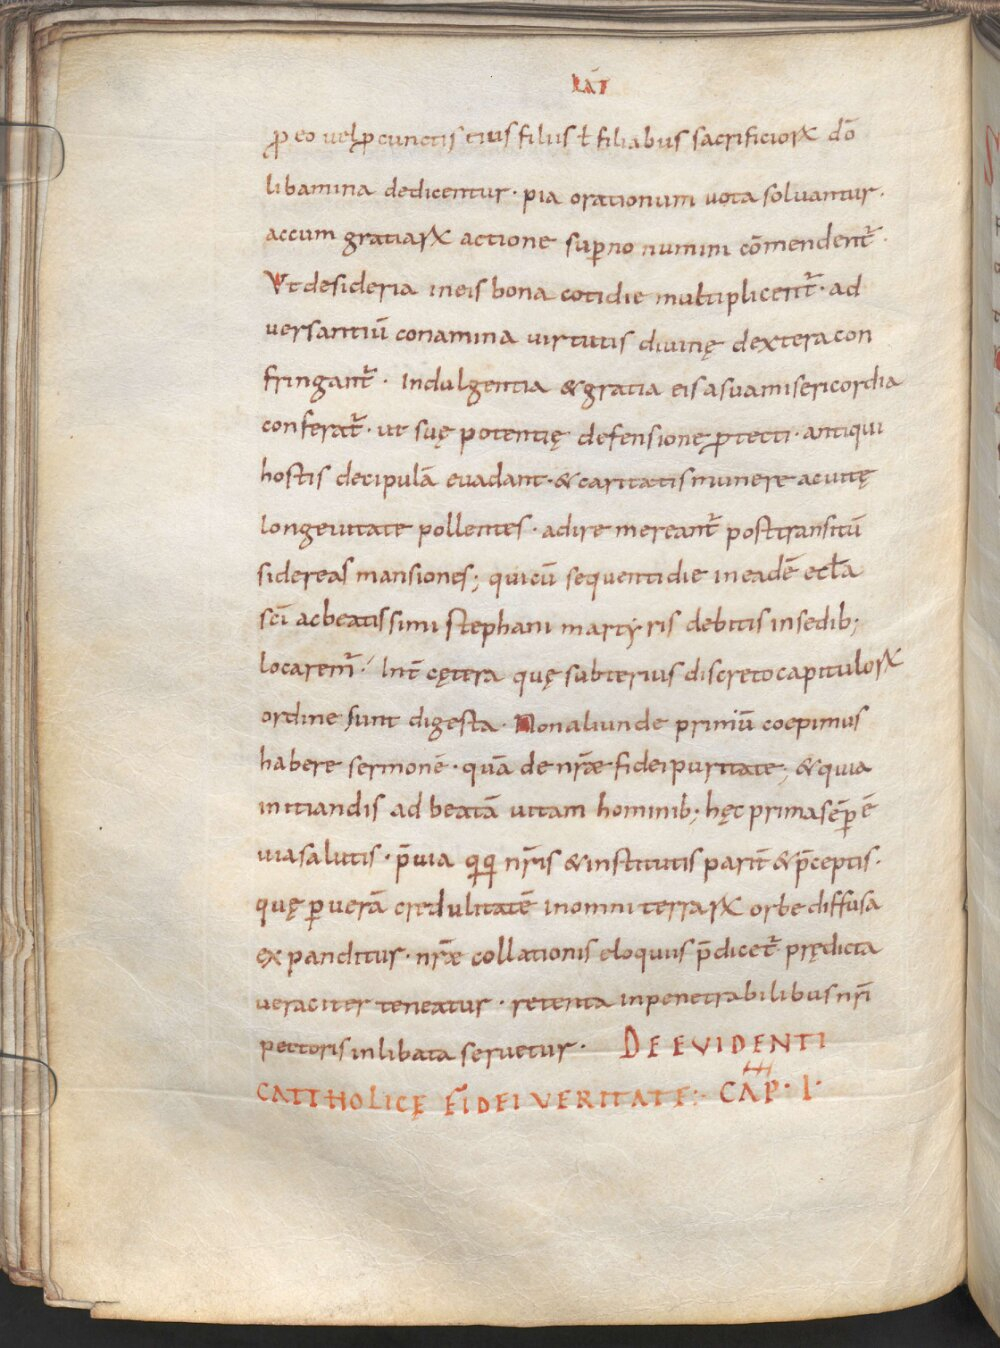 LXĀI
ꝓ eo vel ꝓ cunctis eius filiis ł filiabus sacrificioꝝ dō
libamina dedicentur · pia orationum vota solvantur ·
accum gratiaꝝ actione suꝑno numini cōmendent᷑ ·
Vt desideria in eis bona cotidie multiplicent᷑ · ad
versantiū conamina virtutis divinę dextera con
fringant᷑ · Indulgentia & gratia eis a sua misericordia
conferat᷑ · ut suę potentię defensione ꝓtecti · antiqui
hostis decipulā evadant · & caritatis munere ac vitę
longevitate pollentes · adire mereant᷑ post transitū
sidereas mansiones; qui cū sequenti die in eadē eccła
sc̄i ac beatissimi stephani martyris debitis in sedib;
locarem᷑ · Int̄ cętera quę subterius discreto capituloꝝ
ordine sunt digesta · Non aliunde primū coepimus
habere sermonē · quā de nr̄æ fidei puritate; & quia
initiandis ad beatā vitam hominib; hęc prima sēꝑ ē
via salutis · p̄via qiqi nr̄is & institutis parit̄ & p̄ceptis ·
quę ꝑ verā credulitatē in omni terraꝝ orbe diffusa
expanditur · nr̄æ collationis eloquiis p̄dicet᷑ prędicta
veraciter teneatur · retenta inpenetrabilibus nr̄i
pectoris inlibata servetur · DE EVIDENTI
CATTHOLICĘ FIDEI VERITATE · CAP · I ·